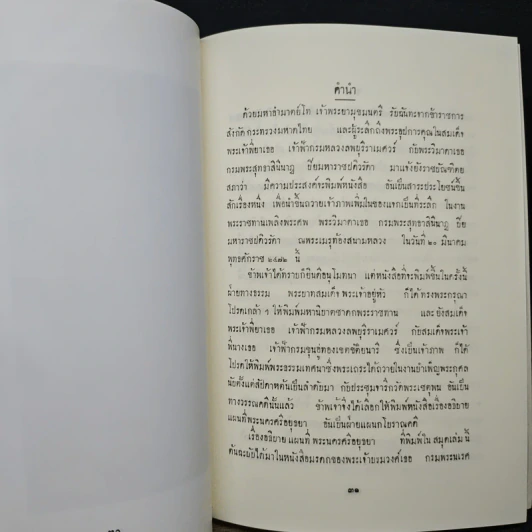 คำนำ
ด้วยมหาอำมาตย์โท เจ้าพระยามุขมนตรี รับฉันทะจากข้าราชการ
สังกัดกระทรวงมหาดไทย และผู้ระลึกถึงพระอุปการคุณในสมเด็จ
พระเจ้าพี่ยาเธอ เจ้าฟ้ากรมหลวงลพบุรีราเมศวร์ กับพระวิมาดาเธอ
กรมพระสุทธาสินีนาฏ ปิยมหาราชปดิวรัดา มาแจ้งยังราชบัณฑิตย
สภาว่า มีความประสงค์จะพิมพ์หนังสือ อันเป็นสาระประโยชน์ขึ้น
สักเรื่องหนึ่ง เพื่อนำขึ้นถวายเจ้าภาพเพิ่มในของแจกเป็นที่ระลึก ในงาน
พระราชทานเพลิงพระศพ พระวิมาดาเธอ กรมพระสุทธาสินีนาฏ ปิย
มหาราชปดิวรัดา ณพระเมรุท้องสนามหลวง ในวันที่ ๒๐ มีนาคม
พุทธศักราช ๒๔๗๒ นี้
ข้าพเจ้าได้ทราบก็ยินดีอนุโมทนา แต่หนังสือที่จะพิมพ์ขึ้นในครั้งนี้
ฝ่ายทางธรรม พระบาทสมเด็จพระเจ้าอยู่หัว ก็ได้ทรงพระกรุณา
โปรดเกล้า ฯ ให้พิมพ์มหานิบาตชาดกพระราชทาน และยังสมเด็จ
พระเจ้าพี่ยาเธอ เจ้าฟ้ากรมหลวงลพบุรีราเมศวร์ กับสมเด็จพระเจ้า
พี่นางเธอ เจ้าฟ้ากรมขุนอู่ทองเขตขัตติยนารี ซึ่งเป็นเจ้าภาพ ก็ได้
โปรดให้พิมพ์พระธรรมเทศนาซึ่งพระเถระได้ถวายในงานบำเพ็ญพระกุศล
นับตั้งแต่สัปดาหต้นเป็นลำดับมา กับประชุมจารึกวัดพระเชตุพน อันเป็น
ทางวรรณคดีนั้นแล้ว ข้าพเจ้าจึงได้เลือกให้พิมพ์หนังสือเรื่องอธิบาย
แผนที่พระนครศรีอยุธยา อันเป็นฝ่ายแผนกโบราณคดี
เรื่องอธิบายแผนที่พระนครศรีอยุธยา ที่พิมพ์ในสมุดเล่มนี้
ต้นฉะบับได้มาในหนังสือมรดกของพระเจ้าบรมวงศ์เธอ กรมพระนเรศ
๓๑